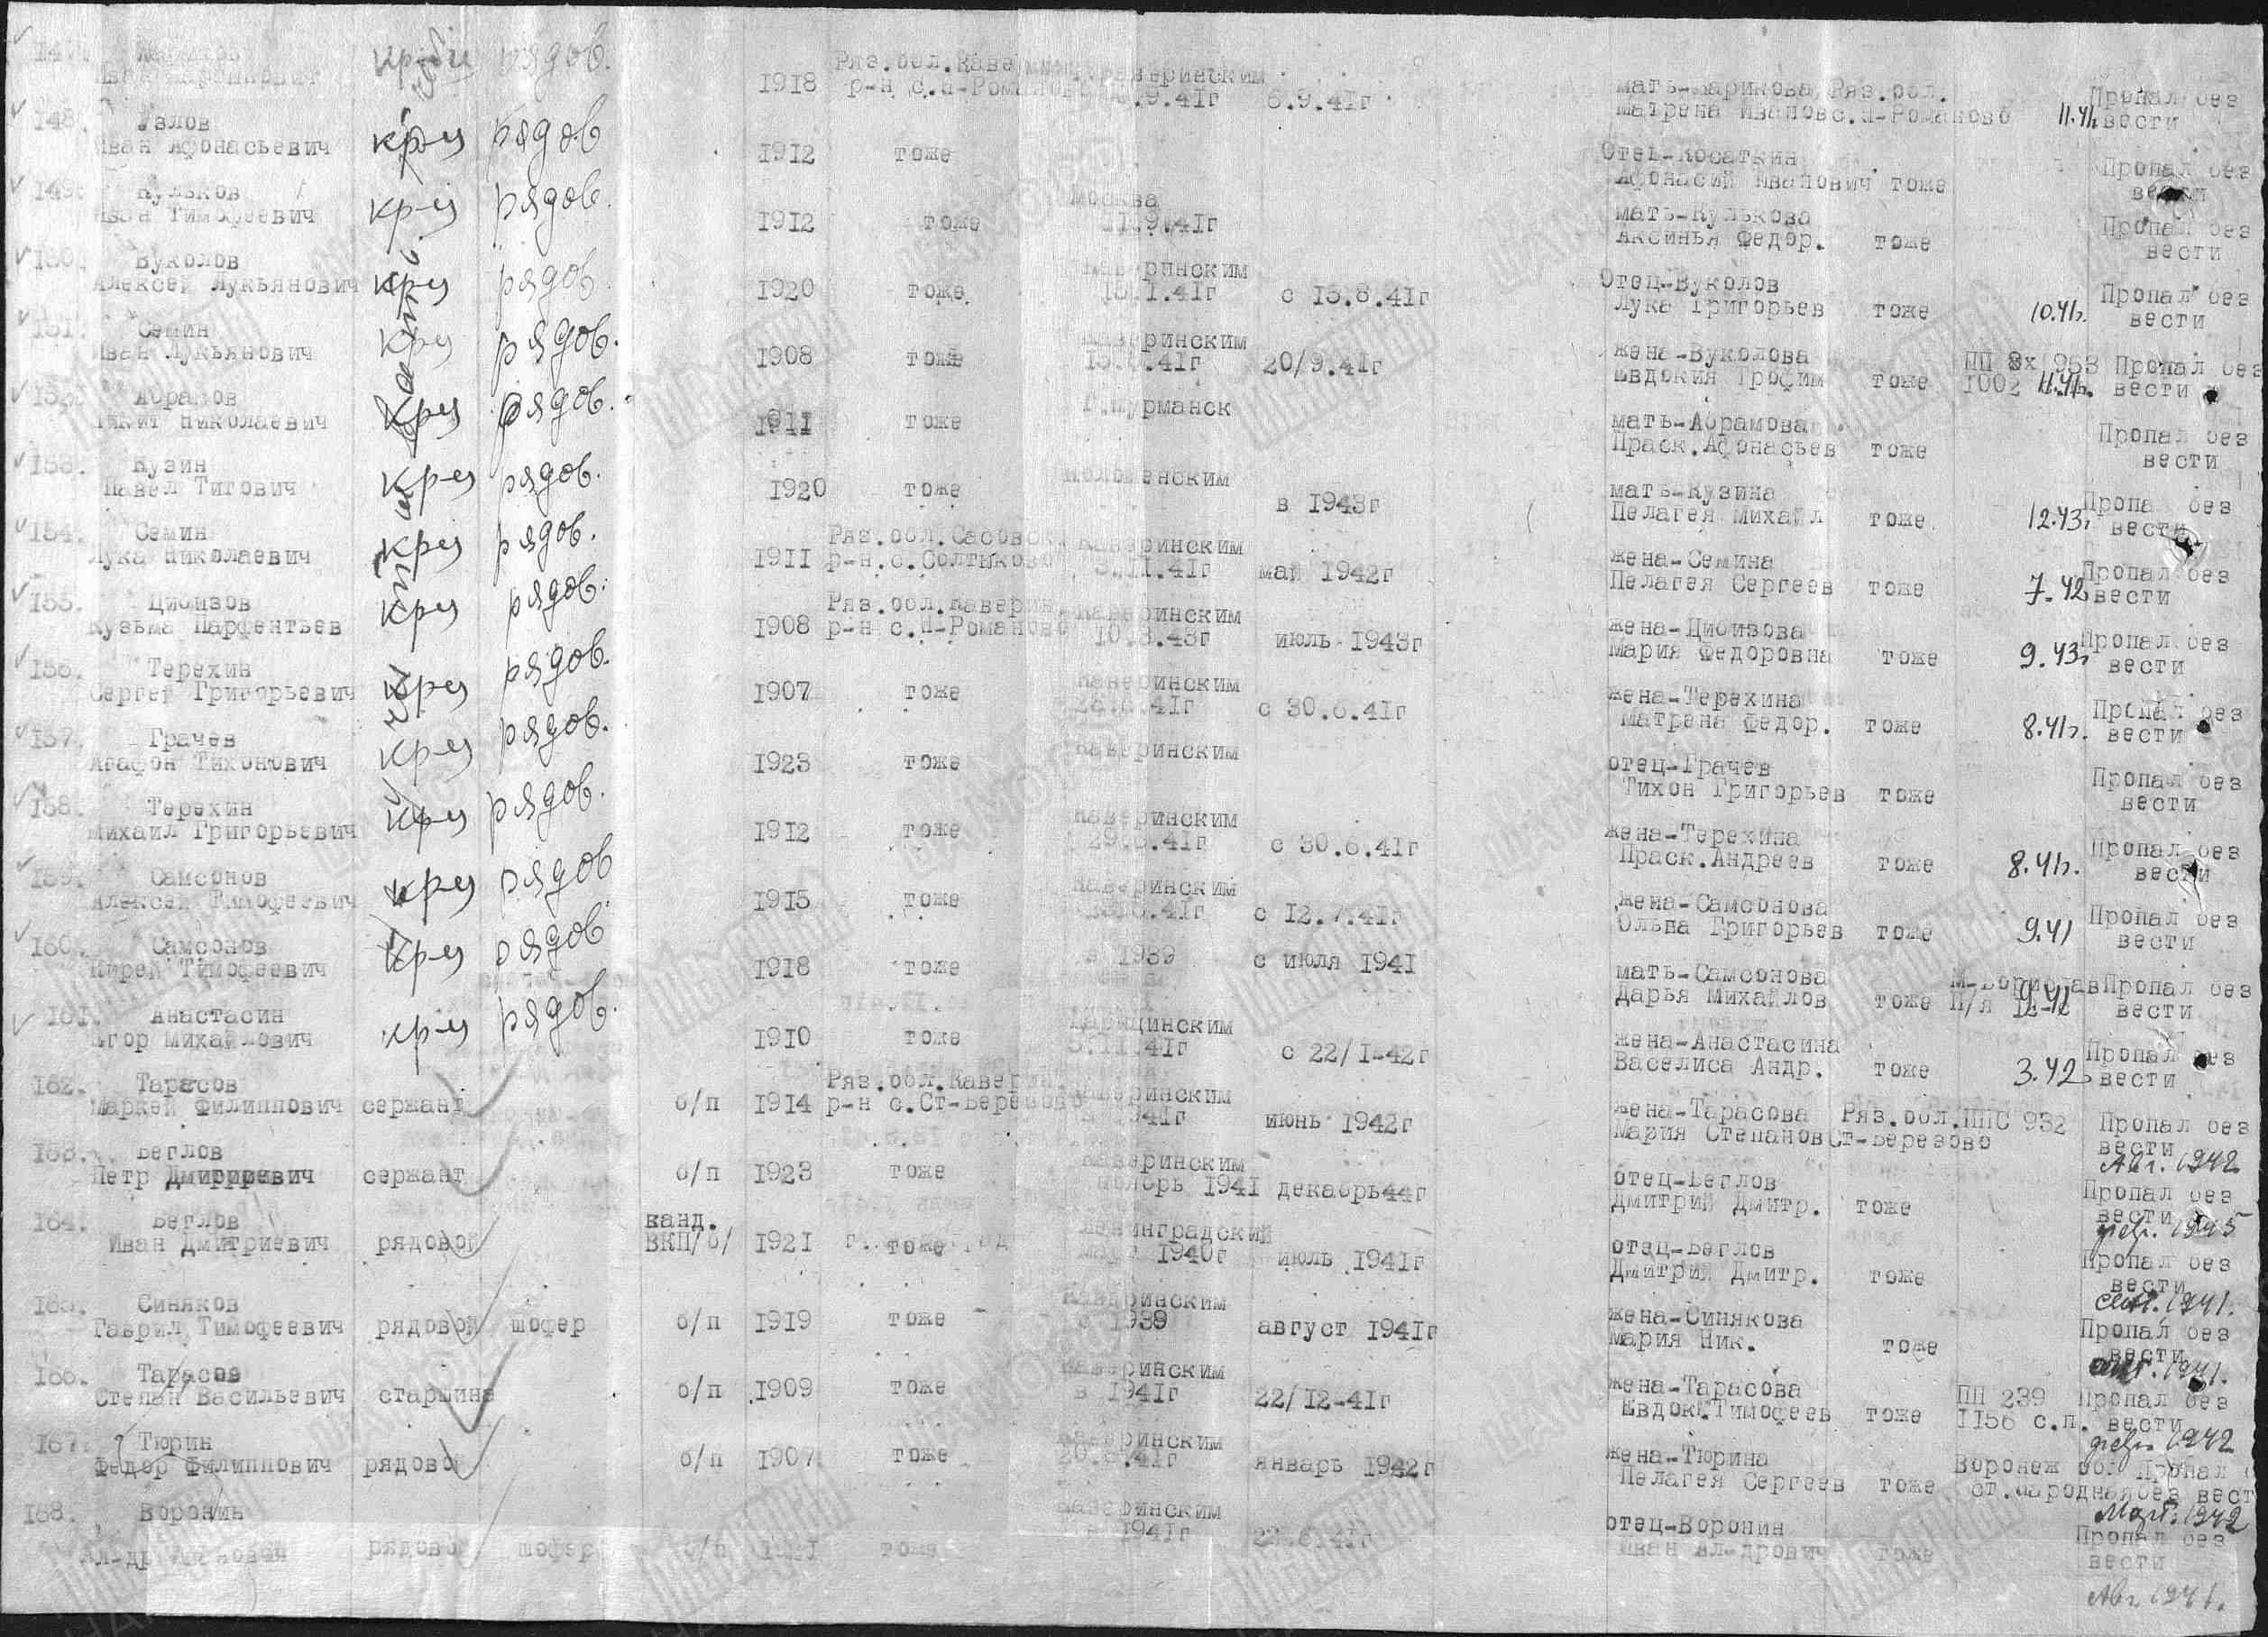 147.
Иван
кр-ец рядов.
1918 Ряз.обл.Каверин
р-н с.Н-Романово Каверинским
.9.41г 6.9.41г
мать-Ларикова Ряз.обл.
Матрена Иванов с.Н-Романово 11.41г. Пропал без
вести
148. Узлов
Иван Афонасьевич кр-ец рядов
1912 тоже
Отец-Косаткин
Афонасий Иванович тоже
Пропал без
вести
149. Кульков
Иван Тимофеевич кр-ец рядов.
1912 тоже Москва
11.9.41г
мать-Кулькова
Аксинья Федор. тоже
Пропал без
вести
150. Вуколов
Алексей Лукьянович кр-ец рядов.
1920 тоже Каверинским
с 15.8.41г
Отец-Вуколов
Лука Григорьев тоже 10.41г. Пропал без
вести
151. Семин
Иван Лукьянович кр-ец рядов.
1908 тоже Каверинским
20/9.41г
жена-Вуколова
Евдокия Трофим тоже
1002 11.41г. Пропал без
вести
152. Абрамов
Никит Николаевич кр-ец рядов.
1911 тоже г.Мурманск
мать-Абрамова
Праск.Афонасьев тоже
Пропал без
вести
153. Кузин
Павел Титович кр-ец рядов.
1920 тоже
в 1943г
мать-Кузина
Пелагея Михайл тоже 12.43г Пропал без
вести
154. Семин
Лука Николаевич кр-ец рядов.
1911 Ряз.обл.Сасовск.
р-н.с.Солтыково Каверинским
.11.41г май 1942г
жена-Семина
Пелагея Сергеев тоже 7.42 Пропал без
вести
155. Цибизов
Кузьма Парфентьев кр-ец рядов.
1908 Ряз.обл.Каверин
р-н с.Н-Романово Каверинским
10.3.43г июль 1943г
жена-Цибизова
Мария Федоровна тоже 9.43г Пропал без
вести
156. Терехин
Сергей Григорьевич кр-ец рядов.
1907 тоже Каверинским
с 30.6.41г
жена-Терехина
Матрена Федор. тоже 8.41г. Пропал без
вести
157. Грачев
Агафон Тихонович кр-ец рядов.
1923 тоже Каверинским
отец-Грачев
Тихон Григорьев тоже
Пропал без
вести
158. Терехин
Михаил Григорьевич кр-ец рядов.
1912 тоже Каверинским
с 30.6.41г
жена-Терехина
Праск.Андреев тоже 8.41г. Пропал без
вести
159. Самсонов
Алексей Тимофеевич кр-ец рядов
1915 тоже Каверинским
с 12.7.41г
жена-Самсонова
Ольга Григорьев тоже 9.41 Пропал без
вести
160. Самсонов
Кирей Тимофеевич кр-ец рядов
1918 тоже в 1939 с июля 1941
мать-Самсонова
Дарья Михайлов тоже
Пропал без
вести
161. Анастасин
Егор Михайлович кр-ец рядов.
1910 тоже
.11.41г с 22/1-42г
жена-Анастасина
Василиса Андр. тоже 3.42 Пропал без
вести
162. Тарасов
Маркей Филиппович сержант
б/п 1914 Ряз.обл.Каверин.
р-н с.Ст-Березово Каверинским
в 1941г июнь 1942г
жена-Тарасова Ряз.обл.ППС 932
Мария Степанов Ст-Березово
Пропал без
вести
Авг. 1942
163. Беглов
Петр Дмитриевич сержант
б/п 1923 тоже Каверинским
ноябрь 1941 декабрь44г
отец-Беглов
Дмитрий Дмитр. тоже
Пропал без
вести
февр. 1945
164. Беглов
Иван Дмитриевич рядовой
канд.
ВКП/б/ 1921 тоже Ленинградский
1940г июль 1941г
отец-Беглов
Дмитрий Дмитр. тоже
Пропал без
вести
сент. 1941.
165. Синяков
Гаврил Тимофеевич рядовой шофер
б/п 1919 тоже Каверинским
1939 август 1941г
жена-Синякова
Мария Ник. тоже
Пропал без
вести
окт. 1941.
166. Тарасов
Степан Васильевич старшина
б/п 1909 тоже Каверинским
в 1941г 22/12-41г
жена-Тарасова
Евдок.Тимофеев тоже ПП 239
1156 с.п. Пропал без
вести
февр. 1942
167. Тюрин
Федор Филиппович рядовой
б/п 1907 тоже Каверинским
январь 1942г
жена-Тюрина
Пелагея Сергеев тоже Воронеж обл
Пропал
без вест
Март. 1942
168. Воронин
рядовой шофер
б/п тоже Каверинским
1941г
отец-Воронин
Иван Ал-дрович тоже
Пропал без
вести
Авг 1941.